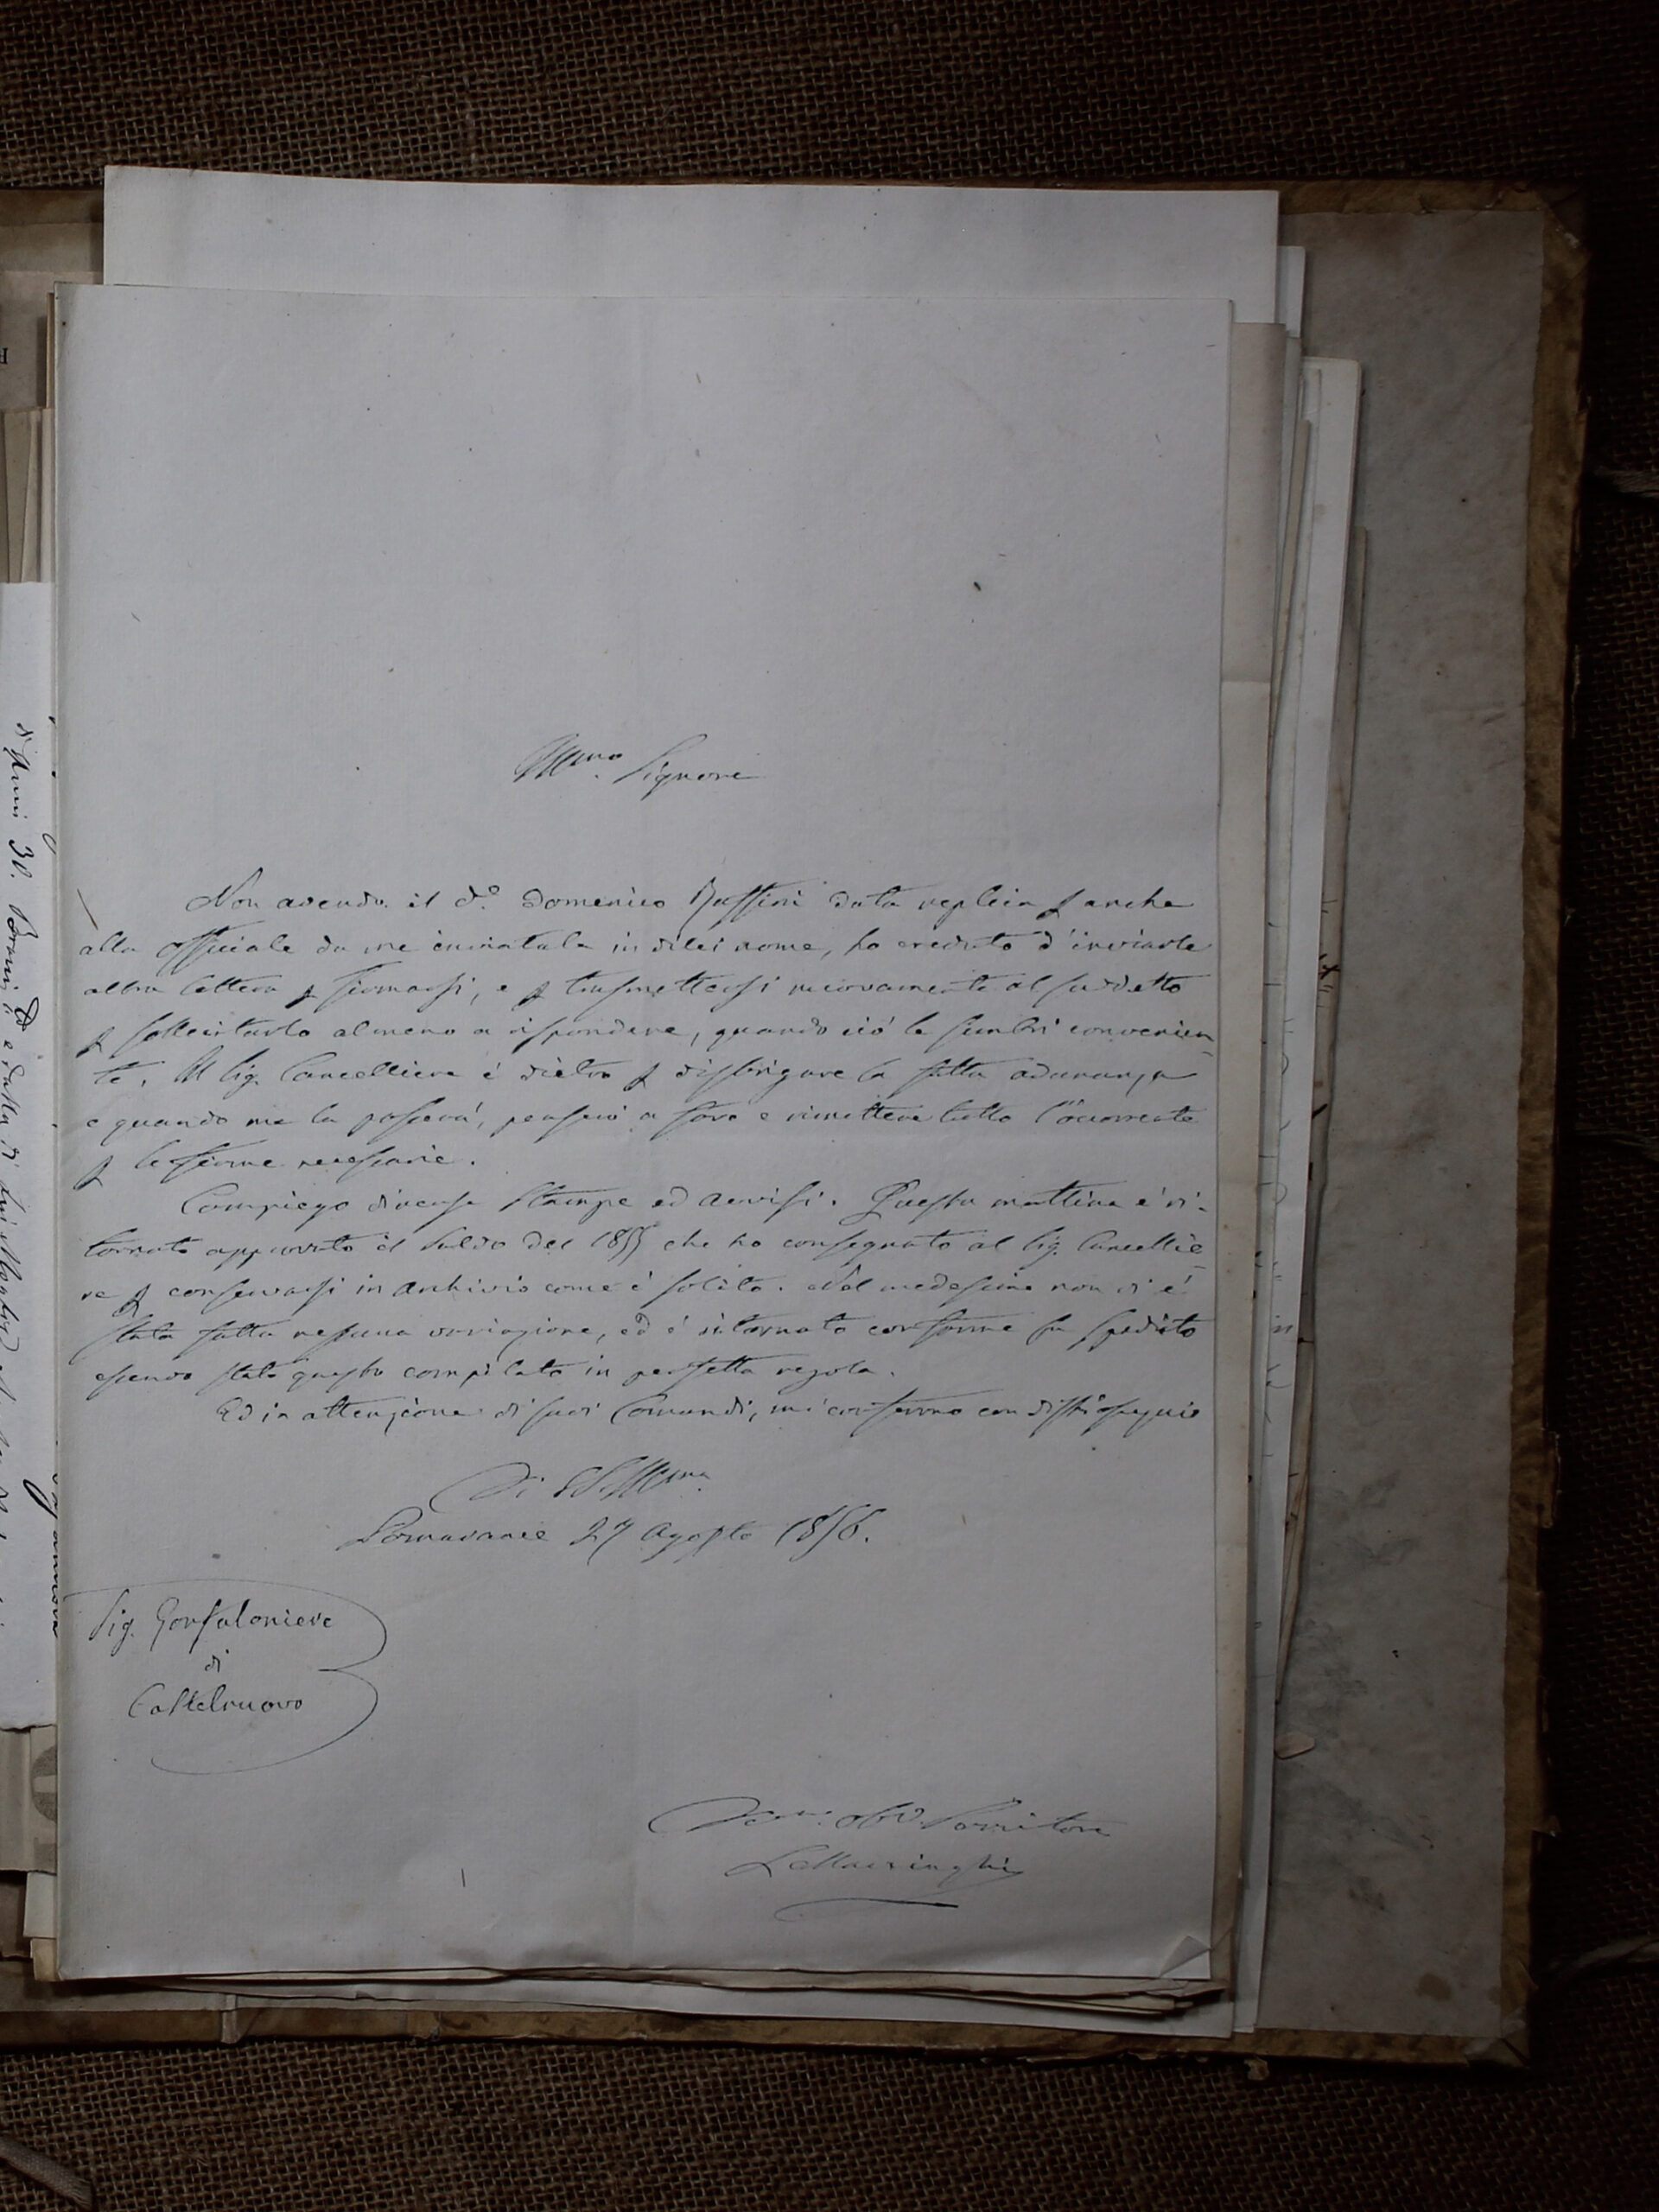 Illmo. Signore
Non avendo il d.o Domenico Ruffini data replica p anche
alla officiale da me inviatale in di lei nome, ho creduto d'inviarle
altra lettera p firmarsi, e p trasmettersi nuovamente al suddetto
p sollecitarlo almeno a rispondere, quando ciò le sembri convenien-
te. Il Sig. Cancelliere è dietro p disbrigare la fatta adunanza
e quando me la passerà, penserò a fare e rimettere tutto l'occorrente
p le firme necessarie.
Compiego diverse Stampe ed avvisi. Questa mattina è ri-
tornato approvato il Saldo del 1855 che ho consegnato al Sig. Cancellie-
re p conservarsi in Archivio come è solito. Nel medesimo non vi è
stata fatta nessuna variazione, ed è ritornato conforme fu spedito
essendo stato questo compilato in perfetta regola.
Ed in attenzione di suoi Comandi, mi confermo con dist. ossequio
Di VS. Illma.
Pomarance 27 Agosto 1856.
Sig. Gonfaloniere
di
Castelnuovo
obb. Servitore
d'Anni 30.